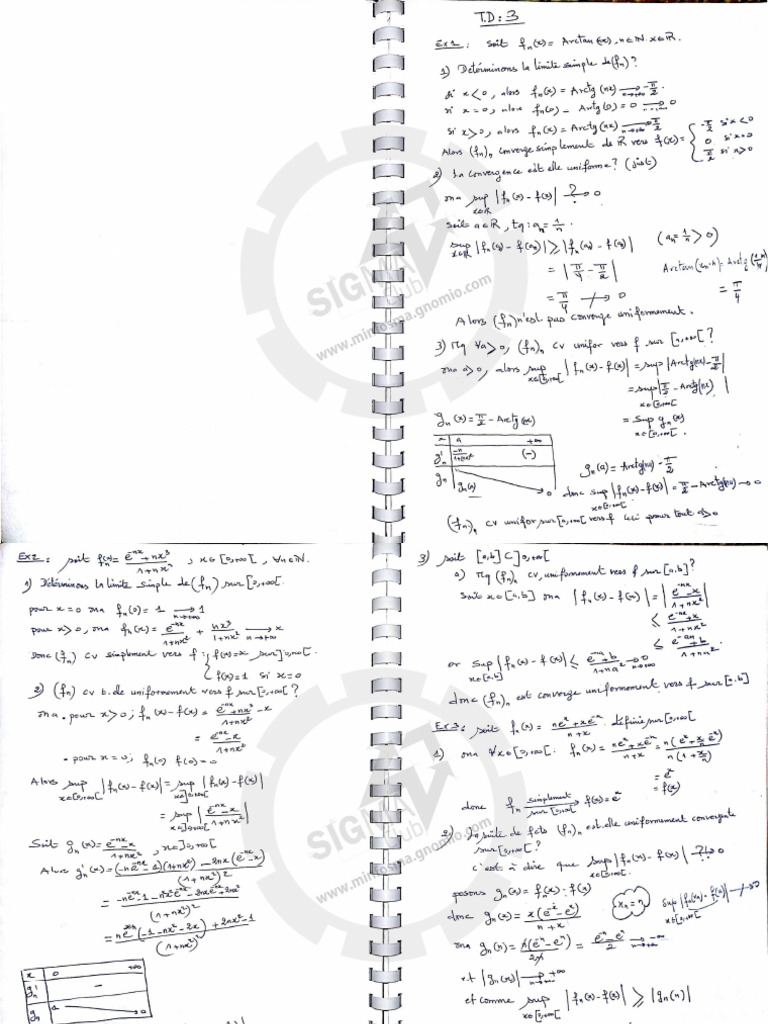 T.D: 3
Ex1: Soit fₙ(x) = Arctan(nx), n∈ℕ. x∈ℝ.
1) Déterminons la limite simple de (fₙ)?
si x<0, alors fₙ(x) = Arctg(nx) ⟶ -π/2 n→+∞
si x=0, alors fₙ(0) = Arctg(0) = 0 ⟶ 0
si x>0, alors fₙ(x) = Arctg(nx) ⟶ π/2 n→+∞
Alors (fₙ)ₙ converge simplement de ℝ vers f(x) = { -π/2 si x<0
0 si x=0
π/2 si x>0
2) la convergence est elle uniforme?
ona sup |fₙ(x) - f(x)| ⟶? 0
x∈ℝ
Soit a∈ℝ, tq: aₙ = 1/n. (aₙ = 1/n > 0)
sup |fₙ(x) - f(x)| ⩾ |fₙ(aₙ) - f(aₙ)|
x∈ℝ
= |π/4 - π/2|
= π/4 ↛ 0
= π/4
Alors (fₙ) n'est pas converge uniformement.
3) Mq ∀a>0, (fₙ)ₙ cv unifor vers f sur [a,+∞[ ?
ona a>0, alors sup |fₙ(x) - f(x)| = sup |Arctg(nx) - π/2|
= sup |π/2 - Arctg(nx)|
= sup gₙ(x)
gₙ(x) = π/2 - Arctg(nx)
x a +∞
g'ₙ -n/(1+(nx)²) (-)
gₙ gₙ(a) 0
gₙ(a) = Arctg(na) - π/2
donc sup |fₙ(x) - f(x)| = π/2 - Arctg(na) ⟶ 0
(fₙ)ₙ cv unifor sur [a,+∞[ vers f ceci pour tout a>0
Ex2: soit fₙ(x) = (e⁻ⁿˣ + nx³)/(1+nx²), x∈[0,+∞[, ∀n∈ℕ.
1) Déterminons la limite simple de (fₙ) sur [0,+∞[.
pour x=0 ona fₙ(0) = 1 ⟶ 1 n→+∞
pour x>0, ona fₙ(x) = e⁻ⁿˣ/(1+nx²) + nx³/(1+nx²) ⟶ x n→+∞
donc (fₙ) cv simplement vers f: { f(x)=x sur ]0,+∞[.
f(x)=1 si x=0
2) (fₙ) cv t-elle uniformement vers f sur [0,+∞[ ?
ona . pour x>0; fₙ(x) - f(x) = (e⁻ⁿˣ + nx³)/(1+nx²) - x
= (e⁻ⁿˣ - x)/(1+nx²)
. pour x=0; fₙ(0) - f(0) = 0
Alors sup |fₙ(x) - f(x)| = sup |fₙ(x) - f(x)|
x∈[0,+∞[ x∈]0,+∞[
= sup |(e⁻ⁿˣ - x)/(1+nx²)|
x∈]0,+∞[
Soit gₙ(x) = (e⁻ⁿˣ - x)/(1+nx²), x∈]0,+∞[
Alors g'ₙ(x) = ((-ne⁻ⁿˣ - 1)(1+nx²) - 2nx(e⁻ⁿˣ - x))/(1+nx²)²
x 0 +∞
g'ₙ -
gₙ 0
3) soit [a,b] ⊂ ]0,+∞[
a) Mq (fₙ)ₙ cv uniformement vers f sur [a,b] ?
Soit x∈[a,b] ona |fₙ(x) - f(x)| = |(e⁻ⁿˣ - x)/(1+nx²)|
⩽ (e⁻ⁿˣ + x)/(1+nx²)
⩽ (e⁻ᵃⁿ + b)/(1+na²)
or sup |fₙ(x) - f(x)| ⩽ (e⁻ᵃⁿ + b)/(1+na²) ⟶ 0 n→+∞
x∈[a,b]
donc (fₙ)ₙ est converge uniformement vers f sur [a,b]
Ex3: soit fₙ(x) = (neˣ + xe⁻ˣ)/(n+x) définie sur [0,+∞[
1) ona ∀x∈[0,+∞[. fₙ(x) = (neˣ + xe⁻ˣ)/(n+x) = n(eˣ + x/n e⁻ˣ)/(n(1 + x/n))
= eˣ
= f(x)
donc fₙ simplement sur [0,+∞[ f(x) = eˣ
2) la suite de fcts (fₙ)ₙ est elle uniformement convergente
sur [0,+∞[ ?
c'est à dire que sup |fₙ(x) - f(x)| ⟶? 0
x∈[0,+∞[
posons gₙ(x) = fₙ(x) - f(x)
donc gₙ(x) = x(e⁻ˣ - eˣ)/(n+x)
xₙ = n
ona gₙ(n) = n(e⁻ⁿ - eⁿ)/2n = (e⁻ⁿ - eⁿ)/2 ⟶ -∞ n→+∞
et |gₙ(n)| ⟶ +∞ n→+∞
et comme sup |fₙ(x) - f(x)| ⩾ |gₙ(n)|
x∈[0,+∞[
www.minfosma.gnomio.com
SIGMA
Club
www.minfosma.gnomio.com